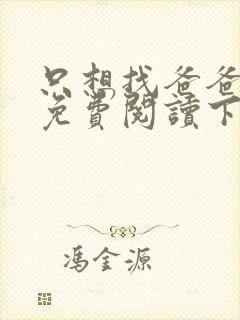 只想找爸爸
免費閱讀下
馮金源